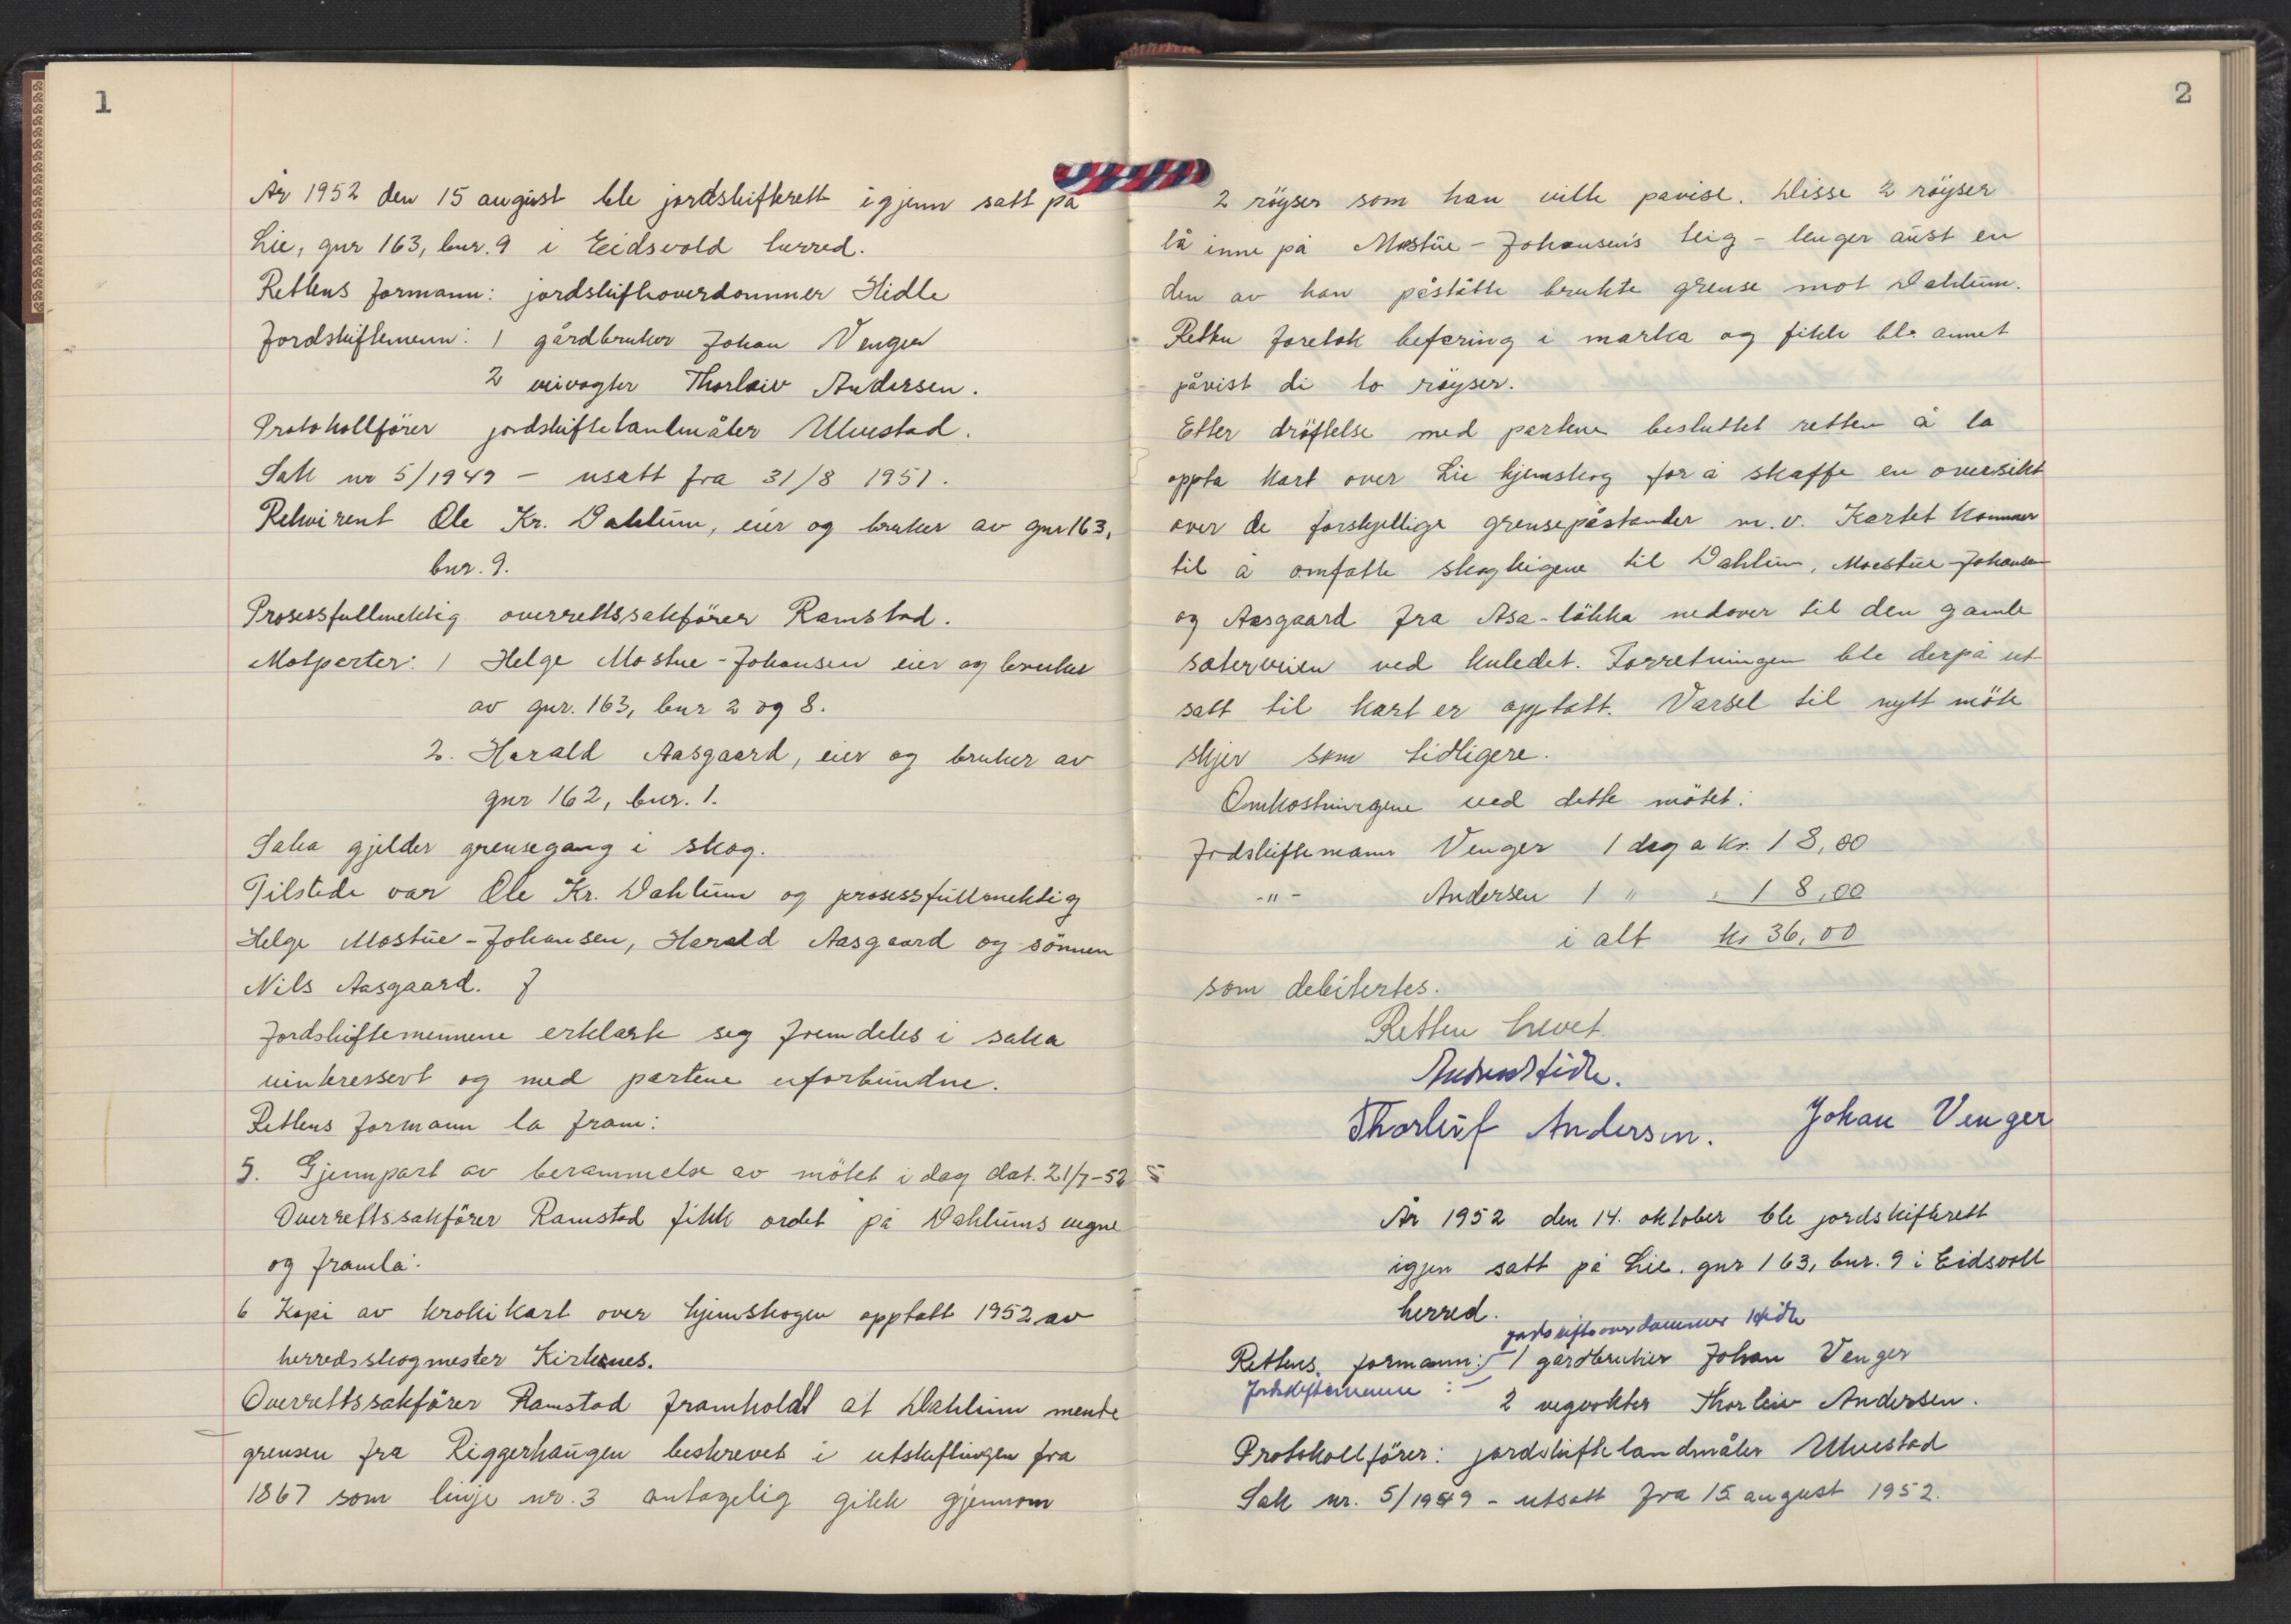 1
År 1952 den 15 august ble jordskifterett igjenn satt på
Lie, gnr 163, bnr. 9 i Eidsvold herred.
Rettens formann: jordskifteoverdommer Hidle
Jordskiftemenn: 1 gårdbruker Johan Venger
2 veivogter Thorleiv Andersen.
Protokollförer jordskiftelandmåler Ulvestad.
Sak nr 5/1949 – usatt fra 31/8 1951.
Rekvirent Ole Kr. Dahlum, eier og bruker av gnr 163,
bnr. 9.
Prosessfullmektig overrettssakförer Ramstad.
Motparter: 1 Helge Mostue-Johansen eier og bruker
av gnr. 163, bnr 2 og 8.
2. Harald Aasgaard, eier og bruker av
gnr 162, bnr. 1.
Saka gjelder grensegang i skog.
Tilstede var Ole Kr. Dahlum og prosessfullmektig
Helge Mostue-Johansen, Harald Aasgaard og sönnen
Nils Aasgaard.
Jordskiftemennene erklærte seg fremdeles i saka
uinteressert og med partene uforbundne.
Rettens formann la fram:
5. Gjennpart av berammelse av mötet i dag dat. 21/7-52 5
Overrettssakförer Ramstad fikk ordet på Dahlums vegne
og framla:
6 Kopi av krokikart over hjemskogen opptatt 1952 av
herredsskogmester Kirkenes.
Overrettssakförer Ramstad framholdt at Dahlum mente
grensen fra Riggerhaugen beskrevet i utskiftingen fra
1867 som linje nr. 3 antagelig gikk gjennom
2
2 röyser som han ville påvise. Disse 2 röyser
lå inne på Mostue-Johansen's teig – lenger aust en
den av han påståtte brukte grense mot Dahlum.
Retten foretok befaring i marka og fikk bl. annet
påvist di to röyser.
Etter dröftelse med partene besluttet retten å la
oppta kart over Lie hjemskog for å skaffe en oversikt
over de forskjellige grensepåstander m.v. Kartet kommer
til å omfatte skogteigene til Dahlum, Moestue-Johansen
og Aasgaard fra Asa-lökka nedover til den gamle
säterveien ved kuledet. Forretningen ble derpå ut
satt til kart er opptatt. Varsel til nytt möte
skjer som tidligere.
Omkostningene ved dette mötet:
Jordskiftemann Venger 1 dag a kr. 18,00
-"- Andersen 1 " " 18,00
i alt kr 36,00
som debitertes.
Retten hevet.
Andreas Hidle.
Thorleif Andersen. Johan Venger
År 1952 den 14. oktober ble jordskifterett
igjen satt på Lie. gnr 163, bnr. 9 i Eidsvoll
herred.
jordskifteoverdommer Hidle
Rettens formann: 1 gårdbruker Johan Venger
Jordskiftemenn :
2 vegvokter Thorleiv Andersen.
Protokollförer: jordskiftelandmåler Ulvestad
Sak nr. 5/1949 – utsatt fra 15 august 1952.